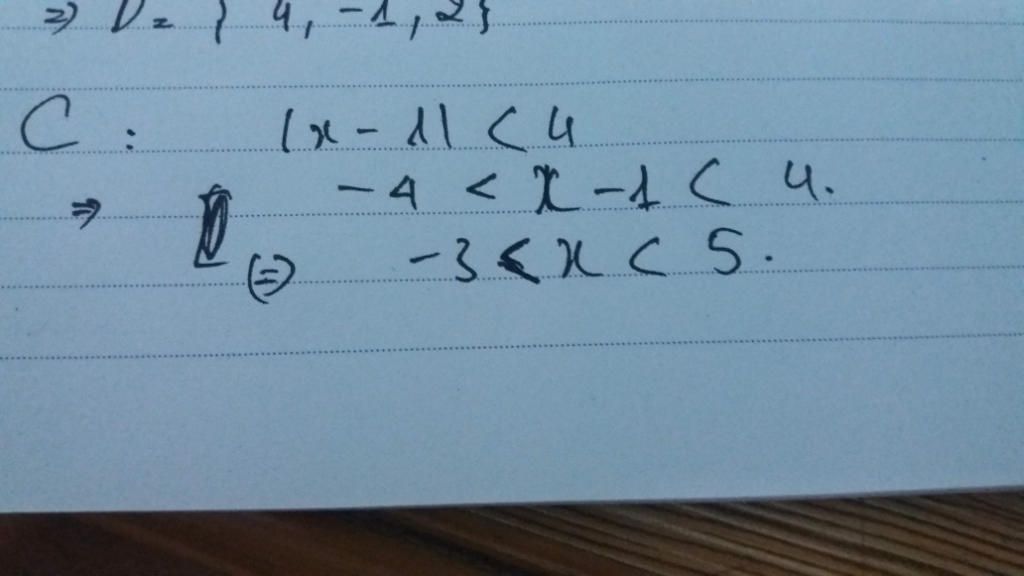 ⇒ D = { 4, -1, 2}
C : |x - 1| < 4
⇒ -4 < x - 1 < 4.
(=) -3 < x < 5.